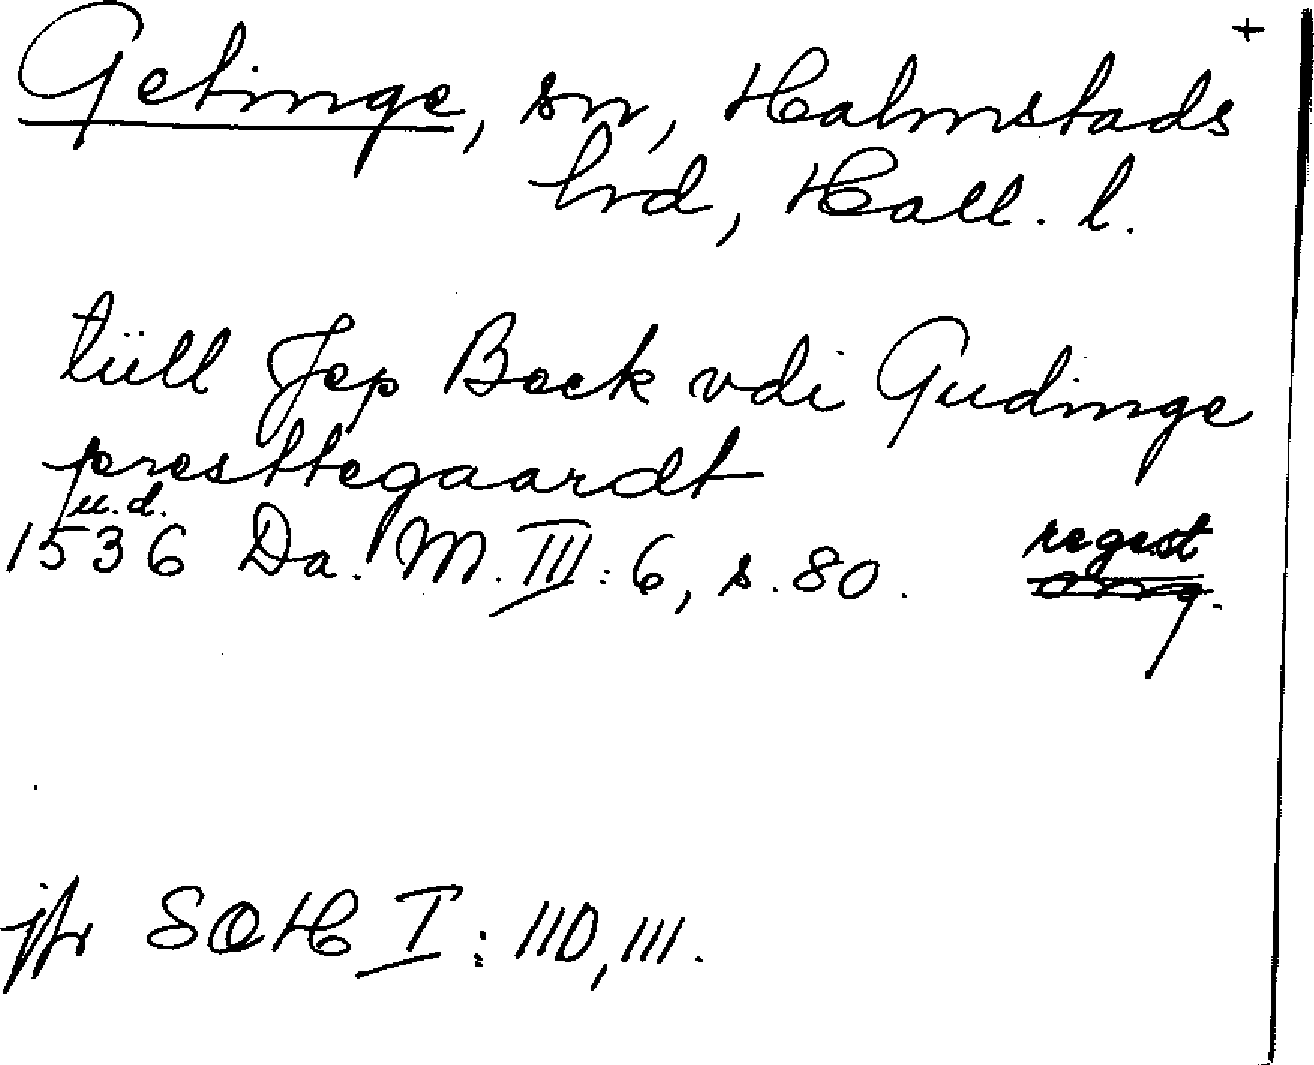 +
Getinge, sn, Halmstads
hrd, Hall. l.
tüll Jep Beck vdi Gudinge
presttegaardt
u.d.
1536 Da. M. III: 6, s. 80. regest
jfr SOH I: 110, 111.